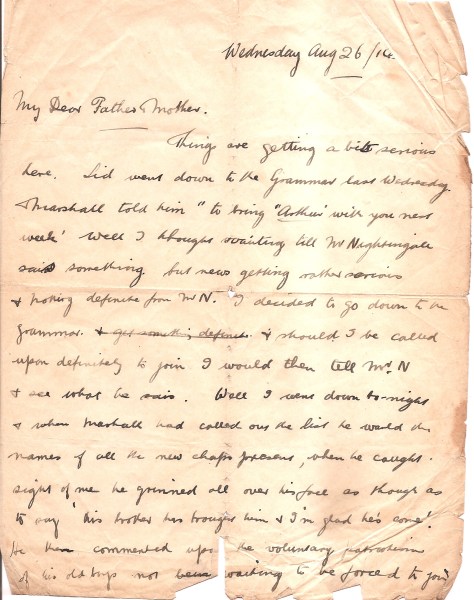 Wednesday Aug 26/14
My Dear Father & Mother.
Things are getting a bit serious
here. Sid went down to the Grammar last Wednesday
& Marshall told him "to bring "Arthur" with you next
week' Well I thought waiting till Mr Nightingale
said something, but news getting rather serious
& nothing definite from Mr N. I decided to go down to the
Grammar. & get something definite & should I be called
upon definitely to join I would then tell Mr N
& see what he said. Well I went down to-night
& when Marshall had called out the list he would the
names of all the new chaps present, when he caught
sight of me he grinned all over his face as though as
to say 'his brother has brought him & I'm glad he's come'.
He then commented upon the voluntary patriotism
of his old boys not being waiting to be forced to join